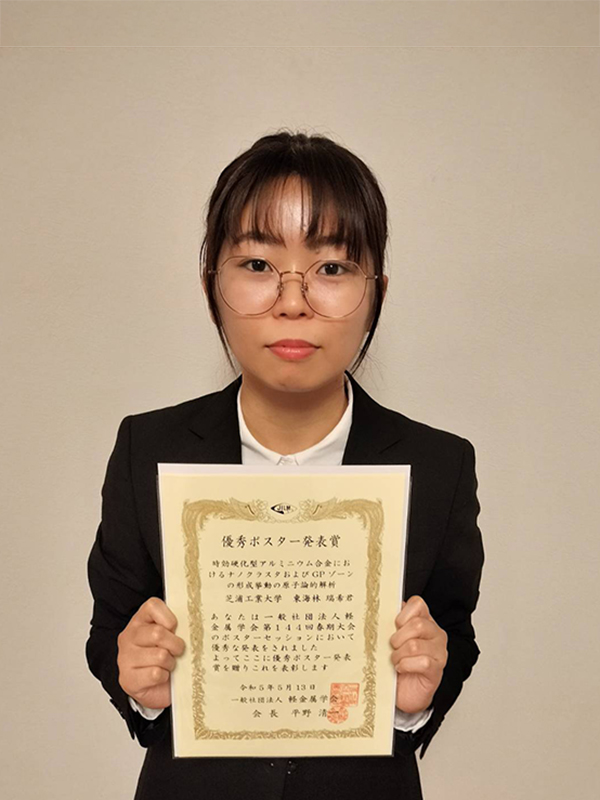 JILM
優秀ポスター発表賞
時効硬化型アルミニウム合金にお
けるナノクラスタおよびGPゾーン
の形成挙動の原子論的解析
芝浦工業大学 東海林 瑞希君
あなたは一般社団法人軽
金属学会第144回春期大会
のポスターセッションにおいて
優秀な発表をされました
よってここに優秀ポスター発表
賞を贈りこれを表彰します
令和5年5月13日
一般社団法人 軽金属学会
会長 平野 清一